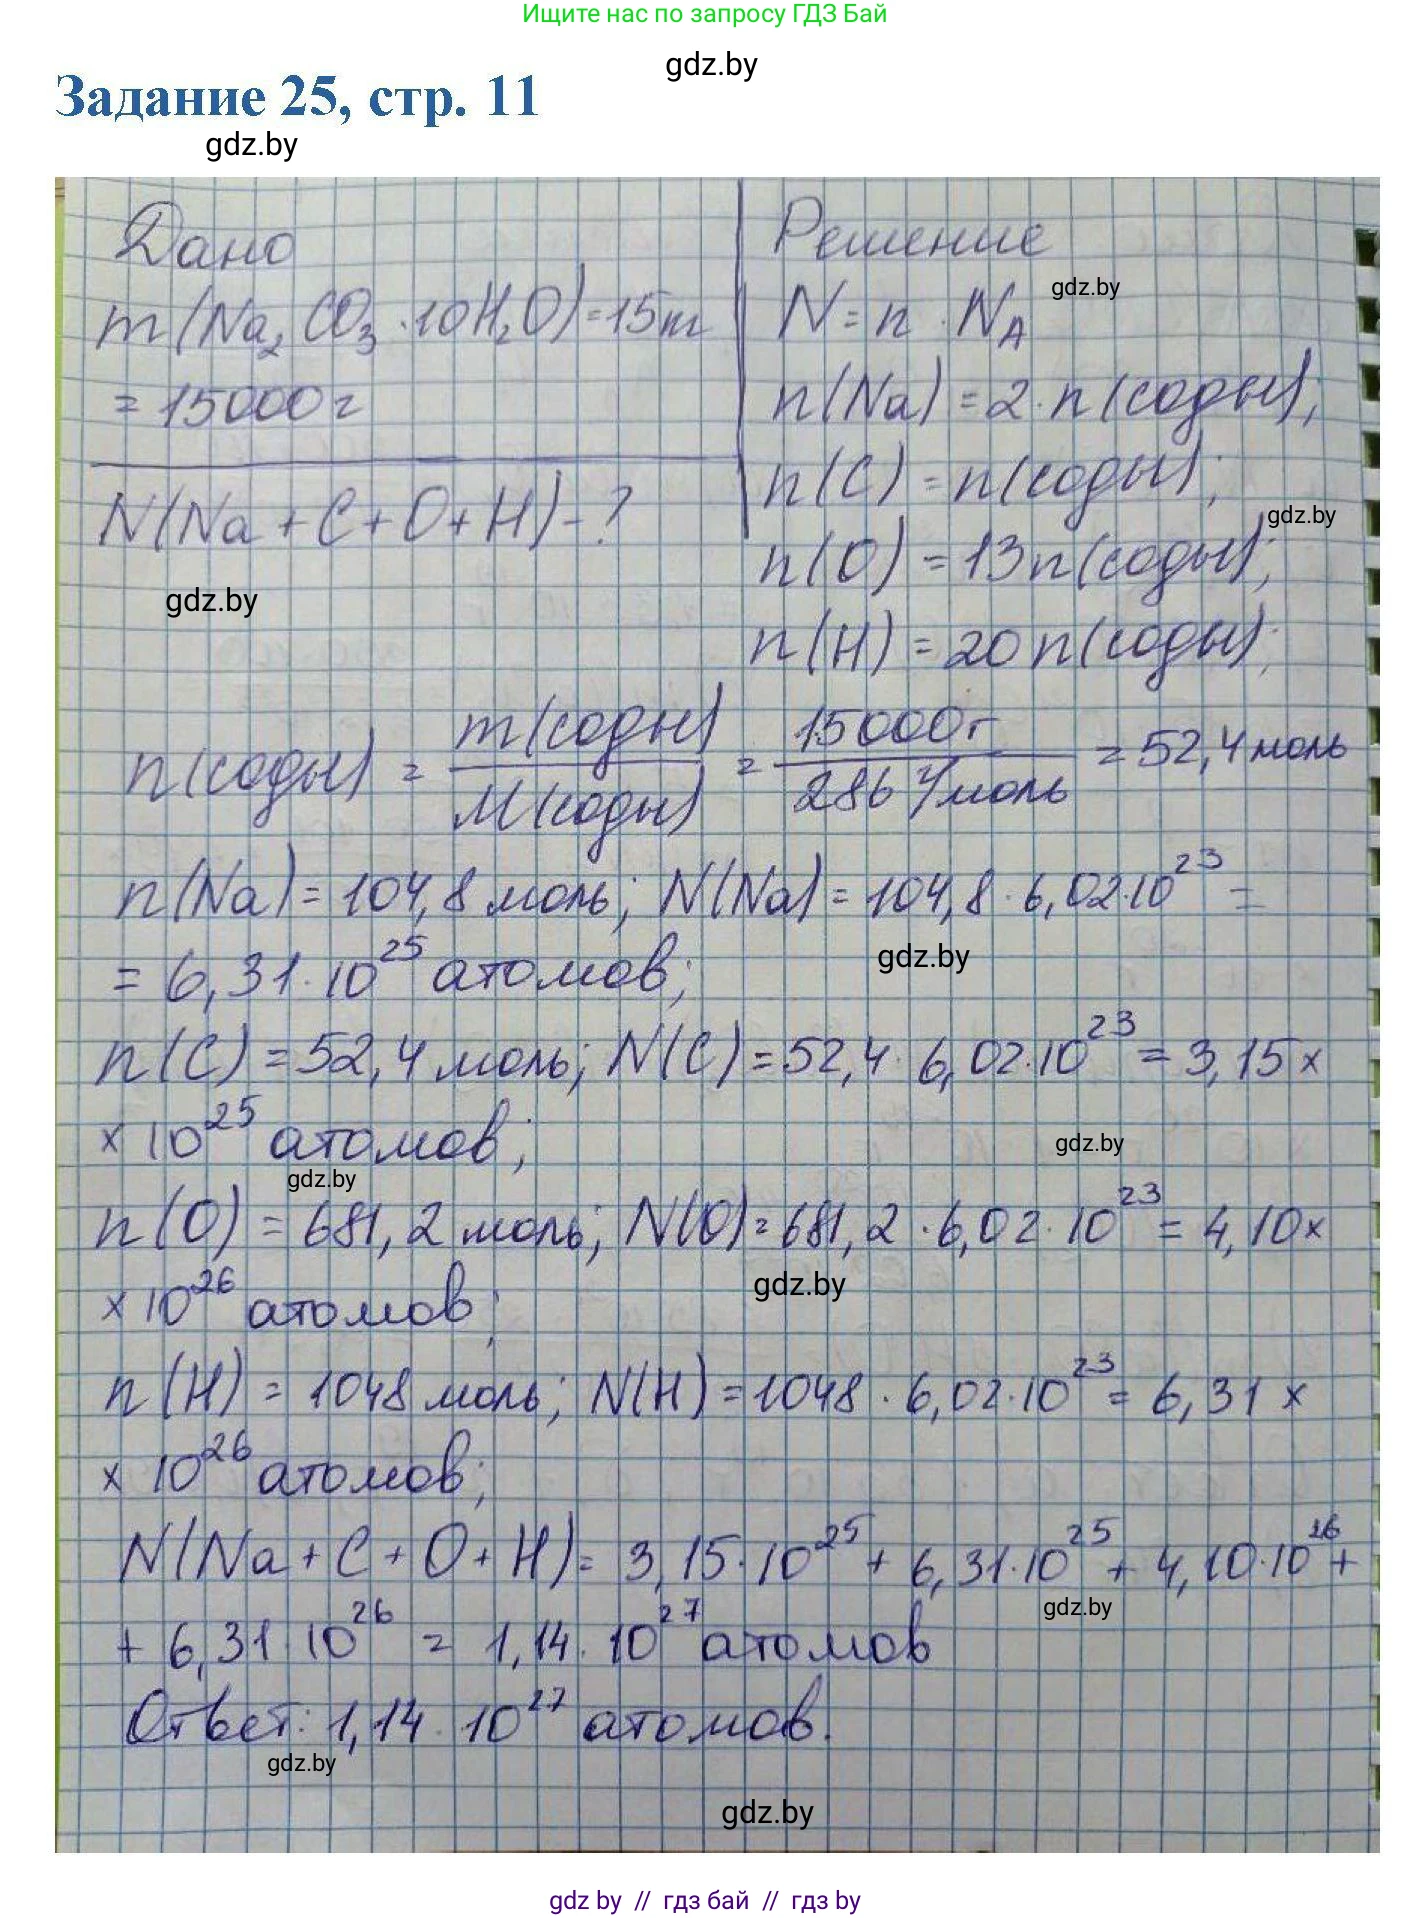 Ищите нас по запросу ГДЗ Бай
gdz.by
Задание 25, стр. 11
gdz.by
Дано
m(Na₂CO₃·10H₂O)=15т
= 15000г
N(Na+C+O+H)-?
gdz.by
Решение
gdz.by
N=n·N_A
n(Na)=2·n(соды);
n(C)=n(соды);
gdz.by
n(O)=13n(соды);
n(H)=20n(соды);
n(соды) = m(соды)/M(соды) = 15000г/286 г/моль = 52,4моль
n(Na)=104,8моль; N(Na)=104,8·6,02·10²³=
gdz.by
=6,31·10²⁵ атомов;
n(C)=52,4моль; N(C)=52,4·6,02·10²³=3,15×
×10²⁵ атомов;
gdz.by
gdz.by
n(O)=681,2моль; N(O)=681,2·6,02·10²³=4,10×
gdz.by
×10²⁶ атомов;
n(H)=1048моль; N(H)=1048·6,02·10²³=6,31×
×10²⁶ атомов;
N(Na+C+O+H)=3,15·10²⁵+6,31·10²⁵+4,10·10²⁶+
gdz.by
+6,31·10²⁶=1,14·10²⁷атомов
Ответ: 1,14·10²⁷ атомов.
gdz.by
gdz.by
gdz by // гдз бай // гдз by